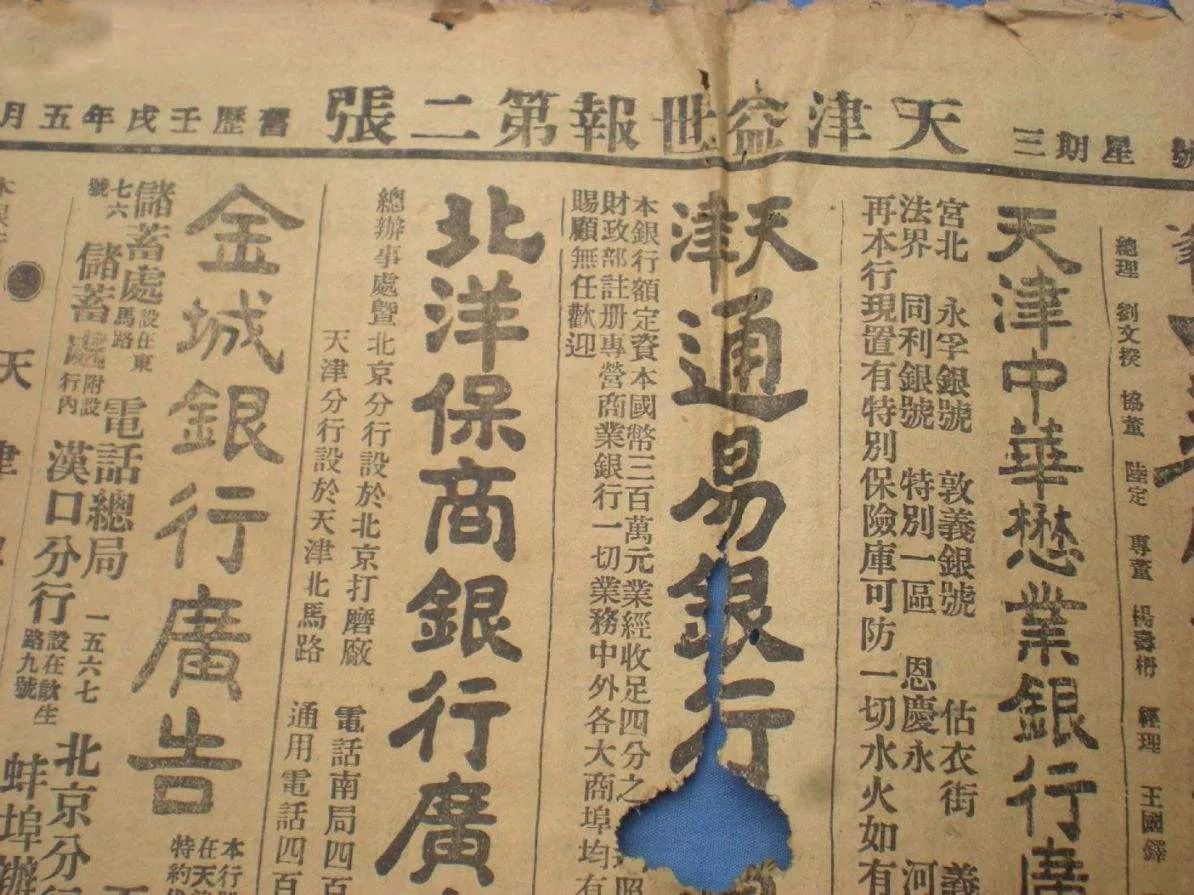 號 星期三
天津益世報第二張
舊歷壬戌年五月
總理 劉文揆 協董 陸定 專董 楊壽枏 經理 王國鐸
天津中華懋業銀行廣
宮北 永孚銀號 敦義銀號 估衣街 義
法界 同利銀號 特別一區 恩慶永 河
再本行現置有特別保險庫可防一切水火如有
天津通易銀行
本銀行額定資本國幣三百萬元業經收足四分之
財政部註册專營商業銀行一切業務中外各大商埠均有
賜顧無任歡迎
北洋保商銀行廣
總辦事處暨北京分行設於北京打磨廠 電話南局四
天津分行設於天津北馬路 通用電話四百
金城銀行廣告
本行
在天
特約
儲蓄處設在東馬路 電話總局 一五六七 北京分
七六號 儲蓄處附設行內 漢口分行設在歆生路九號 蚌埠辦
天津